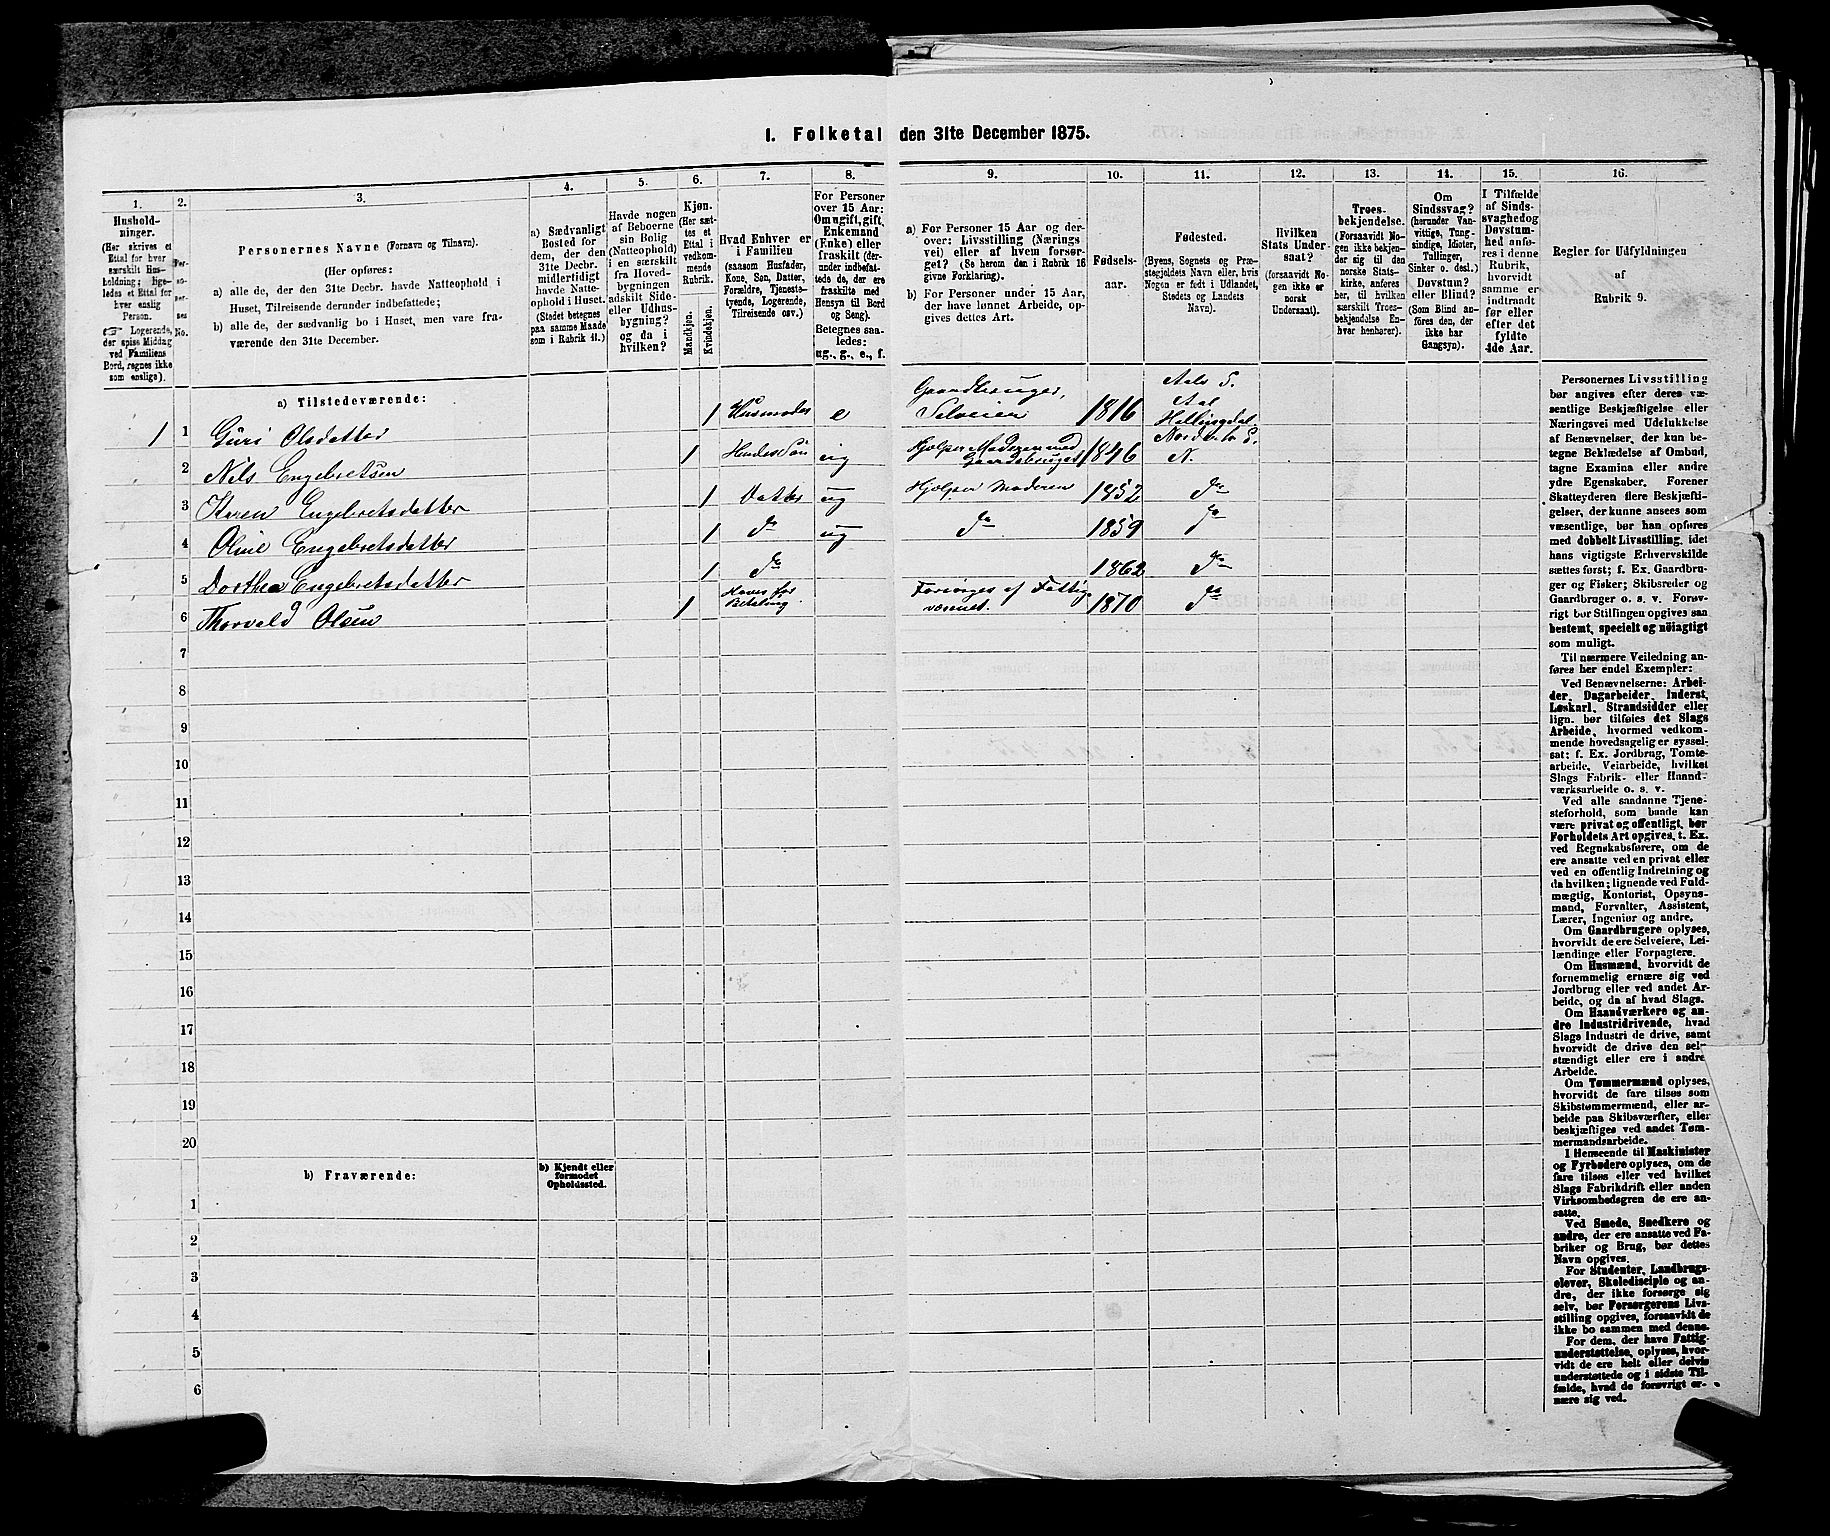 1. Folketal den 31te December 1875.
1.
Hushold-
ninger.
(Her skrives et
Ettal for hver
særskilt Hus-
holdning; lige-
ledes et Ettal for
hver enslig
Person.
☞ Logerende,
der spise Middag
ved Familiens
Bord, regnes ikke
som enslige).
2.
Per-
so-
ner-
nes
No.
3.
Personernes Navne (Fornavn og Tilnavn).
(Her opføres:
a) alle de, der den 31te Decbr. havde Natteophold i
Huset, Tilreisende derunder indbefattede;
b) alle de, der sædvanlig bo i Huset, men vare fra-
værende den 31te December.
4.
a) Sædvanligt
Bosted for
dem, der den
31te Decbr.
midlertidigt
havde Natte-
ophold i Huset.
(Stedet betegnes
paa samme Maade
som i Rubrik 11.)
5.
Havde nogen
af Beboerne
sin Bolig
(Natteophold)
i en særskilt
fra Hoved-
bygningen
adskilt Side-
eller Udhus-
bygning?
og da i
hvilken?
6.
Kjøn.
(Her sæt-
tes et
Ettal i
vedkom-
mende
Rubrik.
Mandkjøn.
Kvindekjøn.
7.
Hvad Enhver er
i Familien
(saasom Husfader,
Kone, Søn, Datter,
Forældre, Tjeneste-
tyende, Logerende,
Tilreisende osv.)
8.
For Personer
over 15 Aar:
Om ugift, gift,
Enkemand
(Enke) eller
fraskilt (der-
under indbefat-
tede de, der ere
fraskilte med
Hensyn til Bord
og Seng).
Betegnes saa-
ledes:
ug., g., e., f.
9.
a) For Personer 15 Aar og der-
over: Livsstilling (Nærings-
vei) eller af hvem forsør-
get? (Se herom den i Rubrik 16
givne Forklaring).
b) For Personer under 15 Aar,
der have lønnet Arbeide, op-
gives dettes Art.
10.
Fødsels-
aar.
11.
Fødested.
(Byens, Sognets og Præ-
stegjeldets Navn eller, hvis
Nogen er født i Udlandet,
Stedets og Landets
Navn).
12.
Hvilken
Stats Under-
saat?
(forsaavidt No-
gen ikke er
norsk
Undersaat).
13.
Troes-
bekjendelse.
(Forsaavidt No-
gen ikke bekjen-
der sig til den
norske Stats-
kirke, anføres
her, til hvilken
særskilt Troes-
bekjendelse En-
hver henhører).
14.
Om
Sindssvag?
(herunder Van-
vittige, Tung-
sindige, Idioter,
Tullinger,
Sinker o. desl.)
Døvstum?
eller Blind?
(Som Blind an-
føres den, der
ikke har
Gangsyn).
15.
I Tilfælde
af Sinds-
svaghed og
Døvstum-
hed anfø-
res i denne
Rubrik,
hvorvidt
samme er
indtraadt
før eller
efter det
fyldte
4de Aar.
16.
Regler for Udfyldningen
af
Rubrik 9.
a) Tilstedeværende:
1 1 Guri Olsdatter 1 Husmoder e Gaardbruger, Selveier 1816 Aals S. Aal Hallingdal
2 Nils Engebretsen 1 Hendes Søn ug Hjælper Moderen med Gaardsbruget 1846 Norderhov S. N.
3 Karen Engebretsdatter 1 Datter ug Hjælper Moderen 1852 do
4 Oline Engebretsdatter 1 do ug do 1859 do
5 Dorthea Engebretsdatter 1 do 1862 do
6 Thorvald Olsen 1 Haves for Betaling Forsørges af Fattigvæsenet. 1870 do
7
8
9
10
11
12
13
14
15
16
17
18
19
20
b) Fraværende:
b) Kjendt eller
formodet
Opholdssted.
1
2
3
4
5
6
Personernes Livsstilling
bør angives efter deres væ-
sentlige Beskjæftigelse eller
Næringsvei med Udelukkelse
af Benævnelser, der kun be-
tegne Beklædelse af Ombud,
tagne Examina eller andre
ydre Egenskaber. Forener
Skatteyderen flere Beskjæfti-
gelser, der kunne ansees som
væsentlige, bør han opføres
med dobbelt Livsstilling, idet
hans vigtigste Erhvervskilde
sættes først; f. Ex. Gaardbru-
ger og Fisker; Skibsreder og
Gaardbruger o. s. v. Forøv-
rigt bør Stillingen opgives saa
bestemt, specielt og nøiagtigt
som muligt.
Til nærmere Veiledning an-
føres her endel Exempler:
Ved Benævnelserne: Arbei-
der, Dagarbeider, Inderst,
Løskarl, Strandsidder eller
lign. bør tilføies det Slags
Arbeide, hvormed vedkom-
mende hovedsagelig er syssel-
sat: f. Ex. Jordbrug, Tomte-
arbeide, Veiarbeide, hvilket
Slags Fabrik- eller Haand-
værksarbeide o. s. v.
Ved alle saadanne Tjene-
steforhold, som baade kan
være privat og offentligt, bør
Forholdets Art opgives, t. Ex.
ved Regnskabsførere, om de
ere ansatte ved en privat eller
ved en offentlig Indretning og
da hvilken; lignende ved Fuld-
mægtig, Kontorist, Opsyns-
mand, Forvalter, Assistent,
Lærer, Ingeniør og andre.
Om Gaardbrugere oplyses,
hvorvidt de ere Selveiere, Lei-
lændinge eller Forpagtere.
Om Husmænd, hvorvidt de
fornemmelig ernære sig ved
Jordbrug eller ved andet Ar-
beide, og da af hvad Slags.
Om Haandværkere og an-
dre Industridrivende, hvad
Slags Industri de drive, samt
hvorvidt de drive den sel-
stændigt eller ere i andre
Arbeide.
Om Tømmermænd oplyses,
hvorvidt de fare tilsøs som
Skibstømmermænd, eller ar-
beide paa Skibsværfter, eller
beskjæftiges ved andet Tøm-
mermandsarbeide.
I Henseende til Maskinister
og Fyrbødere oplyses, om de
fare tilsøs eller ved hvilket
Slags Fabrikdrift eller anden
Virksombedsgren de ere an-
satte.
Ved Smede, Snedkere og
andre, der ere ansatte ved Fa-
briker og Brug, bør dettes
Navn opgives.
For Studenter, Landbrugs-
elever, Skoledisciple og an-
dre, der ikke forsørge sig
selv, bør Forsørgerens Livs-
stilling opgives, forsaavidt de
ikke bo sammen med denne.
For dem, der have Fattig-
understøttelse, oplyses, hvor-
vidt de ere helt eller delvis
understøttede og i sidste Til-
fælde, hvad de forøvrigt er-
nære sig ved.